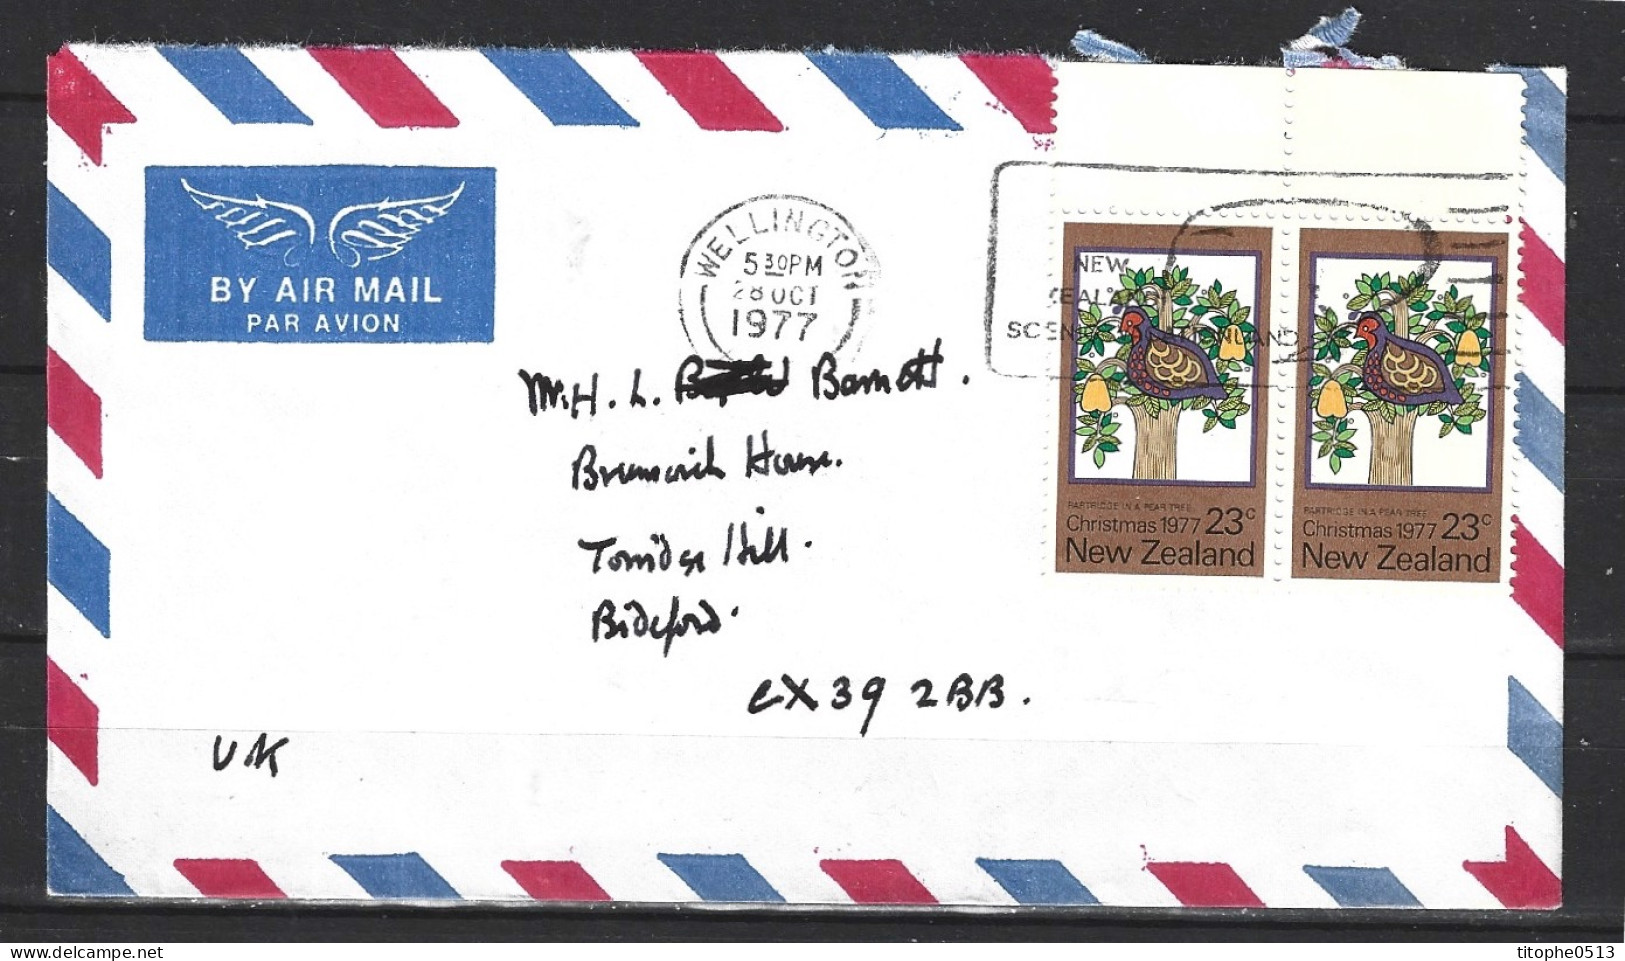 BY AIR MAIL
PAR AVION
WELLINGTON
5 30PM
28 OCT
1977
NEW
ZEALAND
SCENIC WONDERLAND
PARTRIDGE IN A PEAR TREE
Christmas 1977 23c
New Zealand
PARTRIDGE IN A PEAR TREE
Christmas 1977 23c
New Zealand
Mr. H. L. Barnett.
House.
Torridge Hill.
Bideford.
EX39 2BB.
UK
titophe0513